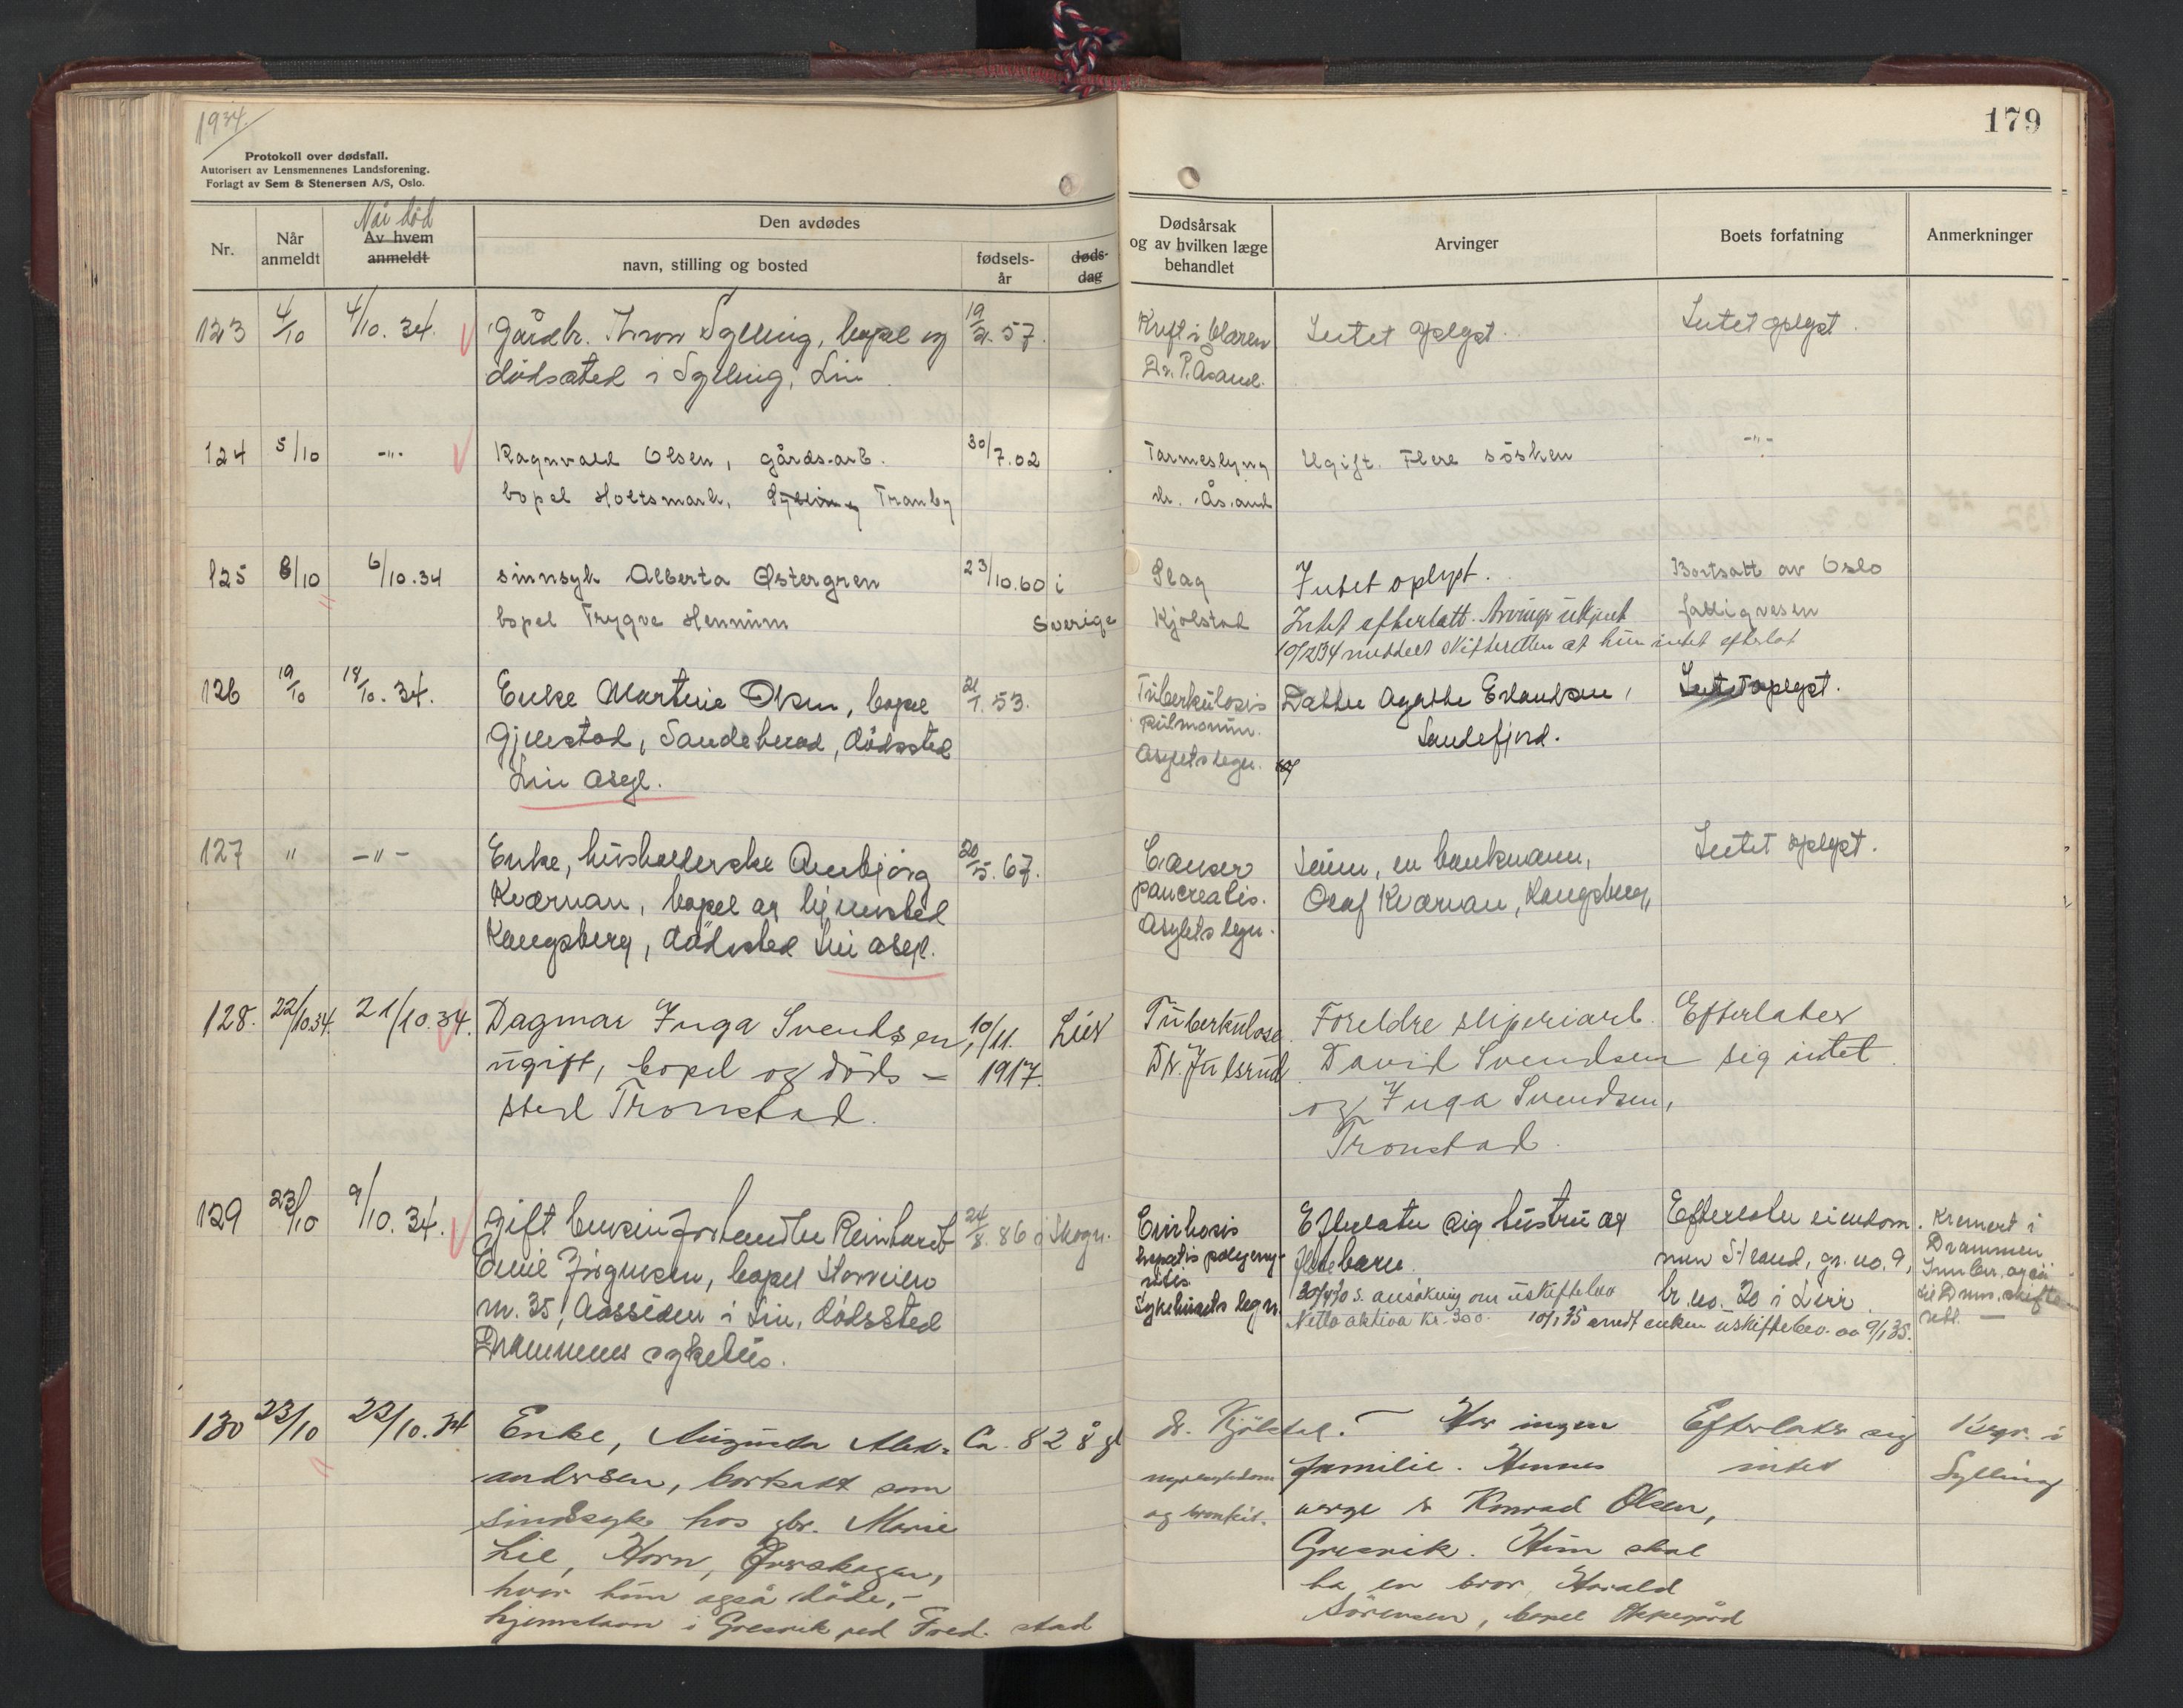 1934.
179
Protokoll over dødsfall.
Autorisert av Lensmennenes Landsforening.
Forlagt av Sem & Stenersen A/S, Oslo.
Nr.
Når anmeldt
Når død
Av hvem anmeldt
Den avdødes
navn, stilling og bosted
fødsels-
år
døds-
dag
Dødsårsak
og av hvilken læge
behandlet
Arvinger
Boets forfatning
Anmerkninger
123 4/10 4/10. 34. Gårdbr. Thron Sylling, bopel og 19/2. 57.
dødssted i Sylling, Lier
Kreft i
Dr. P. Åsand.
Intet oplyst.
Intet oplyst.
124 5/10 -"- Ragnvald Olsen, gårdsarb. 30/7.02
bopel Holtsmark, Sylling Tranby
Tarmeslyng
dr. Åsand
Ugift. Flere søsken
-"-
125 8/10 6/10.34 sinnsyk Alberta Østergren 23/10.60 i
bopel Trygve Hennum Sverige
Slag
Kjølstad
Intet oplyst.
Intet efterlatt. Arvinger ukjent
10/1234 meddelt skifteretten at hun intet efterlot
Bortsatt av Oslo
fattigvesen
126 19/10 18/10. 34. Enke Martine Olsen, bopel 21/1. 53.
Gjerstad, Sandeherad, dødssted
Lier asyl.
Tuberkulosis
pulmonum.
Asylets legn.
Datter Agathe Erlandsen,
Sandefjord.
Intet oplyst.
127 " -"- Enke, husholderske Annbjørg 20/5. 67.
Kværnan, bopel og hjemsted
Kongsberg, dødssted Lier asyl.
Cancer
pancreatis.
Asylets legn.
Sønn, en bankmann,
Olaf Kværnan, Kongsberg,
Intet oplyst.
128. 22/10.34. 21/10.34. Dagmar Inga Svendsen, 10/11. Lier
ugift, bopel og døds- 1917.
sted Tronstad.
Tuberkulose.
Dr. Julsrud
Foreldre sliperiarb.
David Svendsen
og Inga Svendsen,
Tronstad.
Efterlater
sig intet.
129 23/10 9/10. 34. Gift bensinforhandler Reinhardt 24/8. 86 i Skogn.
Emil Jørgensen, bopel
nr. 35, Aassiden i Lier, dødssted
Drammens sykehus.
Cirrhosis
hepatis
Sykehusets legn.
Efterlater sig hustru og
flere barn.
s. ansøkning om uskiftebo
Netto aktiva kr. 300. 10/1 35 sendt enken uskiftebev. av 9/1 35.
Efterlater eiendom-
men Strand, gr. no. 9,
br. no. 20 i Lier.
Kremert i
Drammen
130 23/10 22/10.34 Enke, Augusta Alek- Ca. 82 å gl
andersen, bortsatt som
sindssyk hos gbr. Marie
Lie, Horn, Ørsskogen,
hvor hun også døde,-
hjemstavn i Gresvik ved Fred. stad
dr. Kjølstad.
nyresykdom
og bronkit.
- Har ingen
familie. Hennes
verge er Konrad Olsen,
Gresvik. Hun skal
ha en bror, Harald
Sørensen, bopel Oppegård
Efterlater sig
intet
Begr. i
Sylling